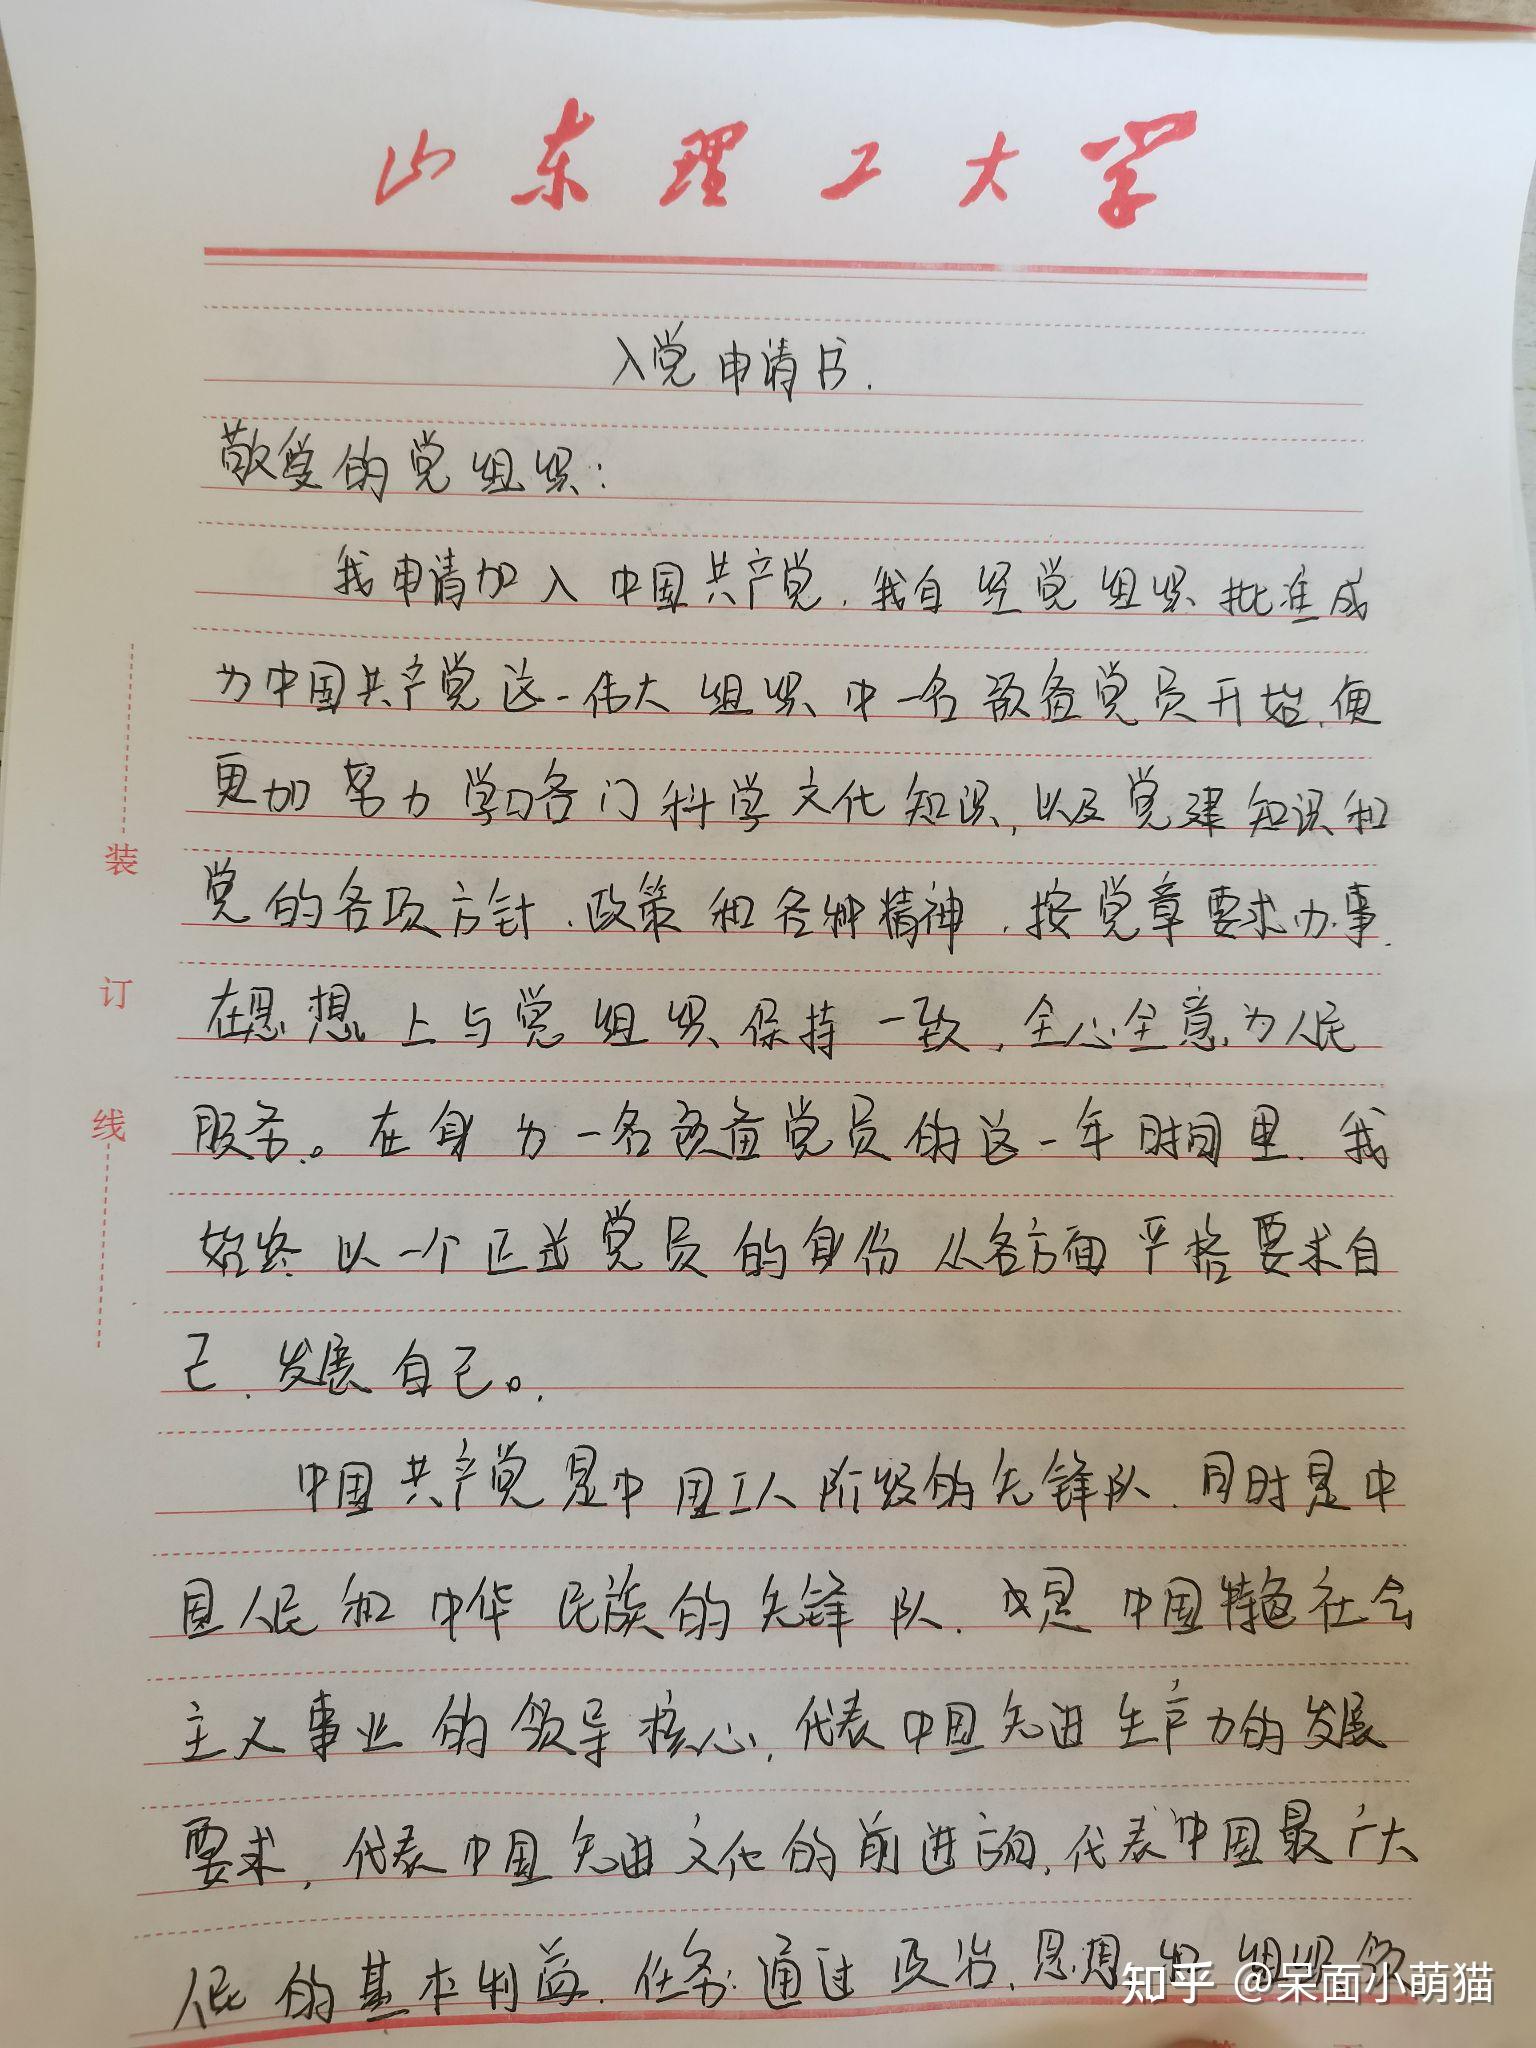 山东理工大学
入党申请书.
敬爱的党组织:
我申请加入中国共产党,我自经党组织批准成
为中国共产党这一伟大组织中一名预备党员开始,便
更加努力学习各门科学文化知识,以及党建知识和
党的各项方针、政策和各种精神,按党章要求办事.
在思想上与党组织保持一致,全心全意为人民
服务。在身为一名预备党员的这一年时间里,我
始终以一个正式党员的身份从各方面严格要求自
己,发展自己。
中国共产党是中国工人阶级的先锋队,同时是中
国人民和中华民族的先锋队,也是中国特色社会
主义事业的领导核心,代表中国先进生产力的发展
要求,代表中国先进文化的前进方向,代表中国最广大
人民的基本利益.任务:通过政治、思想和组织领
装
订
线
知乎 @呆面小萌猫